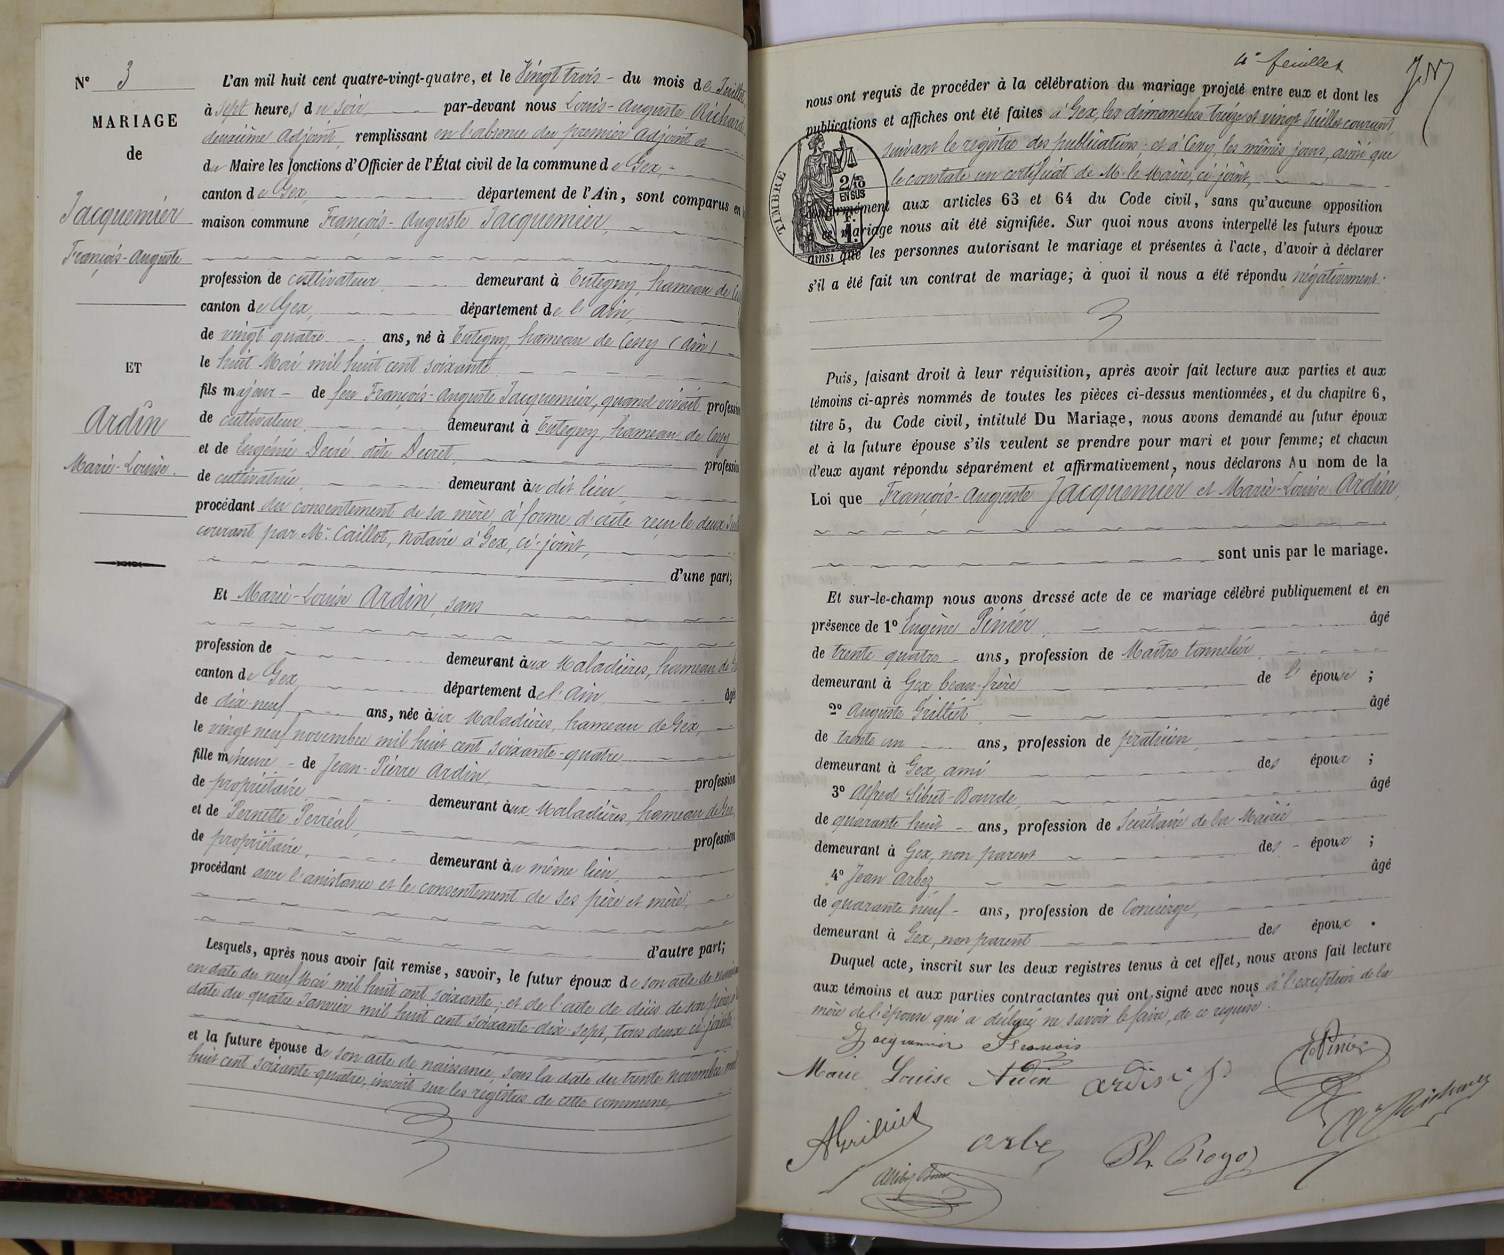 N° 3
MARIAGE
de
Jacquemier
François-Auguste
ET
Ardin
Marie-Louise.
L'an mil huit cent quatre-vingt-quatre, et le Vingt trois - du mois de Juillet,
à sept heures du soir, par-devant nous Louis-Auguste Richard
deuxième Adjoint, remplissant en l'absence du premier adjoint et
du Maire les fonctions d'Officier de l'État civil de la commune de Gex,
canton de Gex, département de l'Ain, sont comparus en
maison commune François-Auguste Jacquemier,
profession de cultivateur demeurant à Tutegny, hameau de
canton de Gex, département de l'Ain,
de vingt quatre ans, né à Tutegny, hameau de Cessy (Ain)
le huit Mai mil huit cent soixante
fils majeur - de feu François-Auguste Jacquemier, quand vivait profession
de cultivateur demeurant à Tutegny, hameau de Cessy
et de Eugénie Decré dite Decret, profession
de cultivatrice, demeurant au dit lieu,
procédant du consentement de sa mère à forme d'acte reçu le deux
courant par Mr. Caillot, notaire à Gex, ci-joint,
d'une part;
Et Marie-Louise Ardin, sans
profession de demeurant aux Maladières, hameau de
canton de Gex, département de l'Ain âgée
de dix neuf ans, née aux Maladières, hameau de Gex,
le vingt neuf novembre mil huit cent soixante-quatre
fille mineure - de Jean-Pierre Ardin, profession
de propriétaire demeurant aux Maladières, hameau de Gex,
et de Pernette Perréal, profession
de propriétaire, demeurant au même lieu,
procédant avec l'assistance et le consentement de ses père et mère,
d'autre part;
Lesquels, après nous avoir fait remise, savoir, le futur époux de son acte de
en date du neuf Mai mil huit cent soixante; et de l'acte de décès de son père,
date du quatre Janvier mil huit cent soixante-dix-sept, tous deux ci-joints,
et la future épouse de son acte de naissance, sous la date du trente novembre mil
huit cent soixante-quatre, inscrit sur les registres de cette commune,
4e feuillet
nous ont requis de procéder à la célébration du mariage projeté entre eux et dont les
publications et affiches ont été faites à Gex, les dimanches treize et vingt Juillet courant,
suivant le registre des publications; et à Cessy, les mêmes jours, ainsi que
le constate un certificat de M. le Maire, ci-joint,
TIMBRE
2/10
EN SUS
F.
1.
conformément aux articles 63 et 64 du Code civil, sans qu'aucune opposition
mariage nous ait été signifiée. Sur quoi nous avons interpellé les futurs époux
ainsi que les personnes autorisant le mariage et présentes à l'acte, d'avoir à déclarer
s'il a été fait un contrat de mariage; à quoi il nous a été répondu négativement.
Puis, faisant droit à leur réquisition, après avoir fait lecture aux parties et aux
témoins ci-après nommés de toutes les pièces ci-dessus mentionnées, et du chapitre 6,
titre 5, du Code civil, intitulé Du Mariage, nous avons demandé au futur époux
et à la future épouse s'ils veulent se prendre pour mari et pour femme; et chacun
d'eux ayant répondu séparément et affirmativement, nous déclarons Au nom de la
Loi que François-Auguste Jacquemier et Marie-Louise Ardin,
sont unis par le mariage.
Et sur-le-champ nous avons dressé acte de ce mariage célébré publiquement et en
présence de 1° Eugène Pinier, âgé
de trente quatre ans, profession de Maître tonnelier
demeurant à Gex beau-frère de l'épouse;
2° Auguste Grillet, âgé
de trente un ans, profession de praticien,
demeurant à Gex, ami des époux;
3° Alfred Sibut-Bourde, âgé
de quarante huit - ans, profession de Secrétaire de la Mairie
demeurant à Gex, non parent des - époux;
4° Jean Arbez, âgé
de quarante neuf - ans, profession de Concierge,
demeurant à Gex, non parent des époux.
Duquel acte, inscrit sur les deux registres tenus à cet effet, nous avons fait lecture
aux témoins et aux parties contractantes qui ont signé avec nous à l'exception de la
mère de l'épouse qui a déclaré ne savoir le faire, de ce requise.
Jacquemier François
Marie Louise Ardin ardin j. p. E Pinier
AGrillet arbez Ph. Royer A Richard